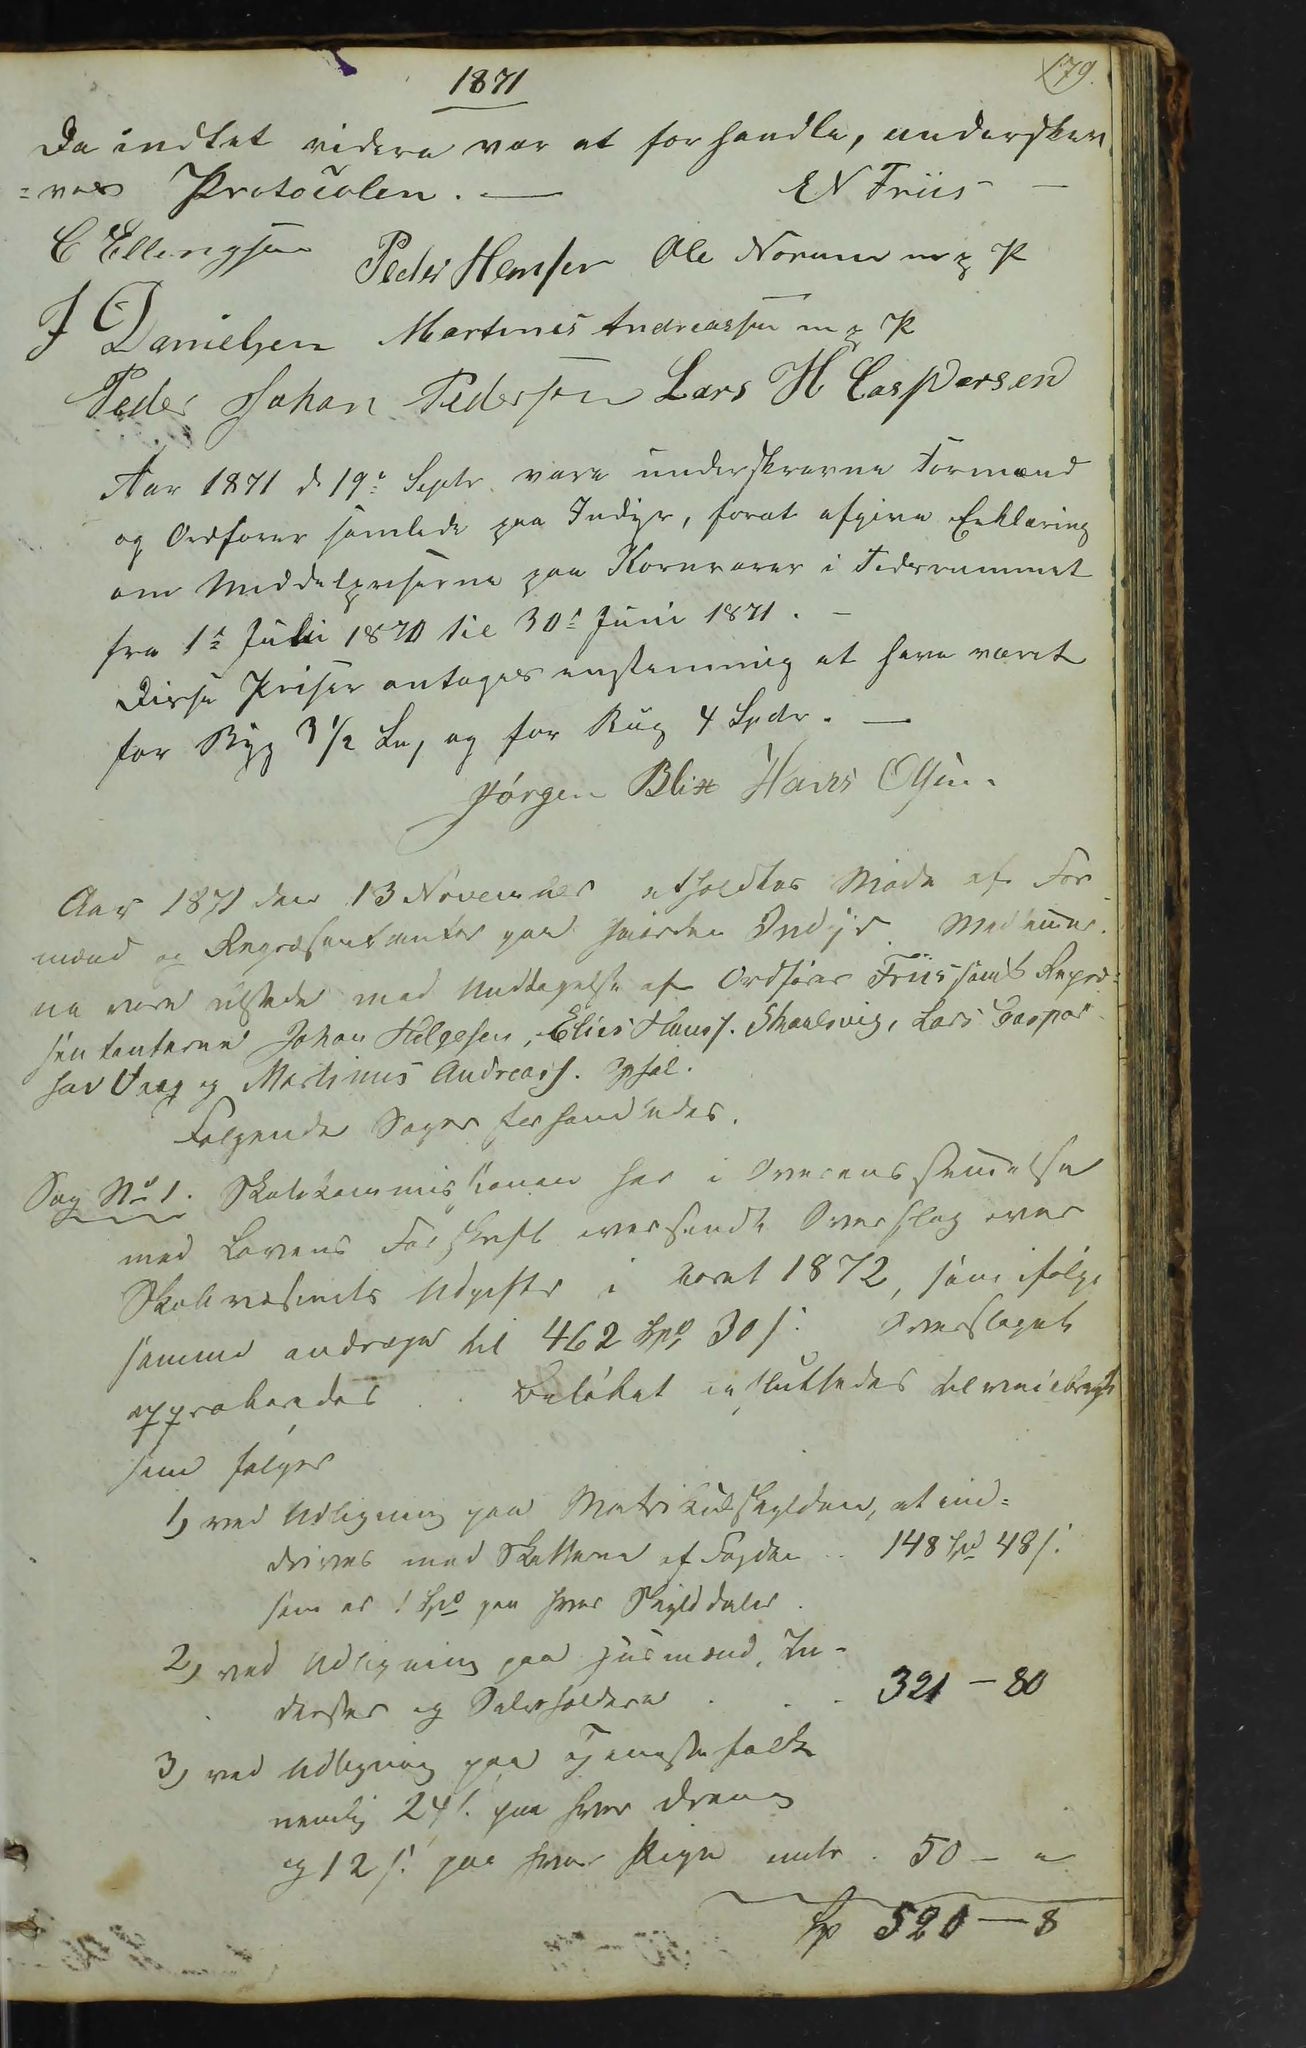 179.
1871
Da indtet videre var at forhandle, underskre
=ves Protocolen. — EN Friis —
C Ellingsen Peder Hansen Ole Norum m p P
J Danielsen Martines Andreassen m p P
Peder Johan Pedersen Lars H Caspersen
Aar 1871 d 19de Septr vare underskrevne Formænd
og Ordfører samlede paa Indyr, forat afgive Erklæring
om Middelpriserne paa Kornvarer i Tidsrummet
fra 1ste Juli 1870 til 30te Juni 1871. —
Disse Priser antages enstemmig at have været
for Byg 3 1/2 Sp, og for Rug 4 Spdr. —
Jørgen Blix Hans Olsen.
Aar 1871 den 13 November afholdtes Møde af For
mænd og Repræsentanter paa Indyr. Medlemmer-
ne vare tilstede med Undtagelse af Ordfører Friis samt Repræ=
sentanterne Johan Helgesen, Elias Hanss. Skaalsvig, Lars Caspar
sen Vaag og Martinus Andreass.
Følgende Sager forhandledes.
Sag No 1. Skolekommissionen har i Overensstemmelse
med Lovens Forskrift oversendt Overslag over
Skolevæsenets Udgifter i Aaret 1872, som ifølge
samme andrager til 462 Spd 30 s. Overslaget
approberedes. Beløbet besluttedes tilveiebragt
som følger
1) ved Udligning paa Matrikulskylden, at ind=
drives med Skatterne af Fogden .. 148 Spd 48 s.
som er 1 Spd paa hver Skylddaler.
2) ved Udligning paa Husmænd, In-
derster og Selvholdere . . . 321 - 80
3) ved Udligning paa Tjenestefolk
nemlig 24 s. paa hver Dreng
og 12 s. paa hver Pige . 50 - "
Sp 520 - 8